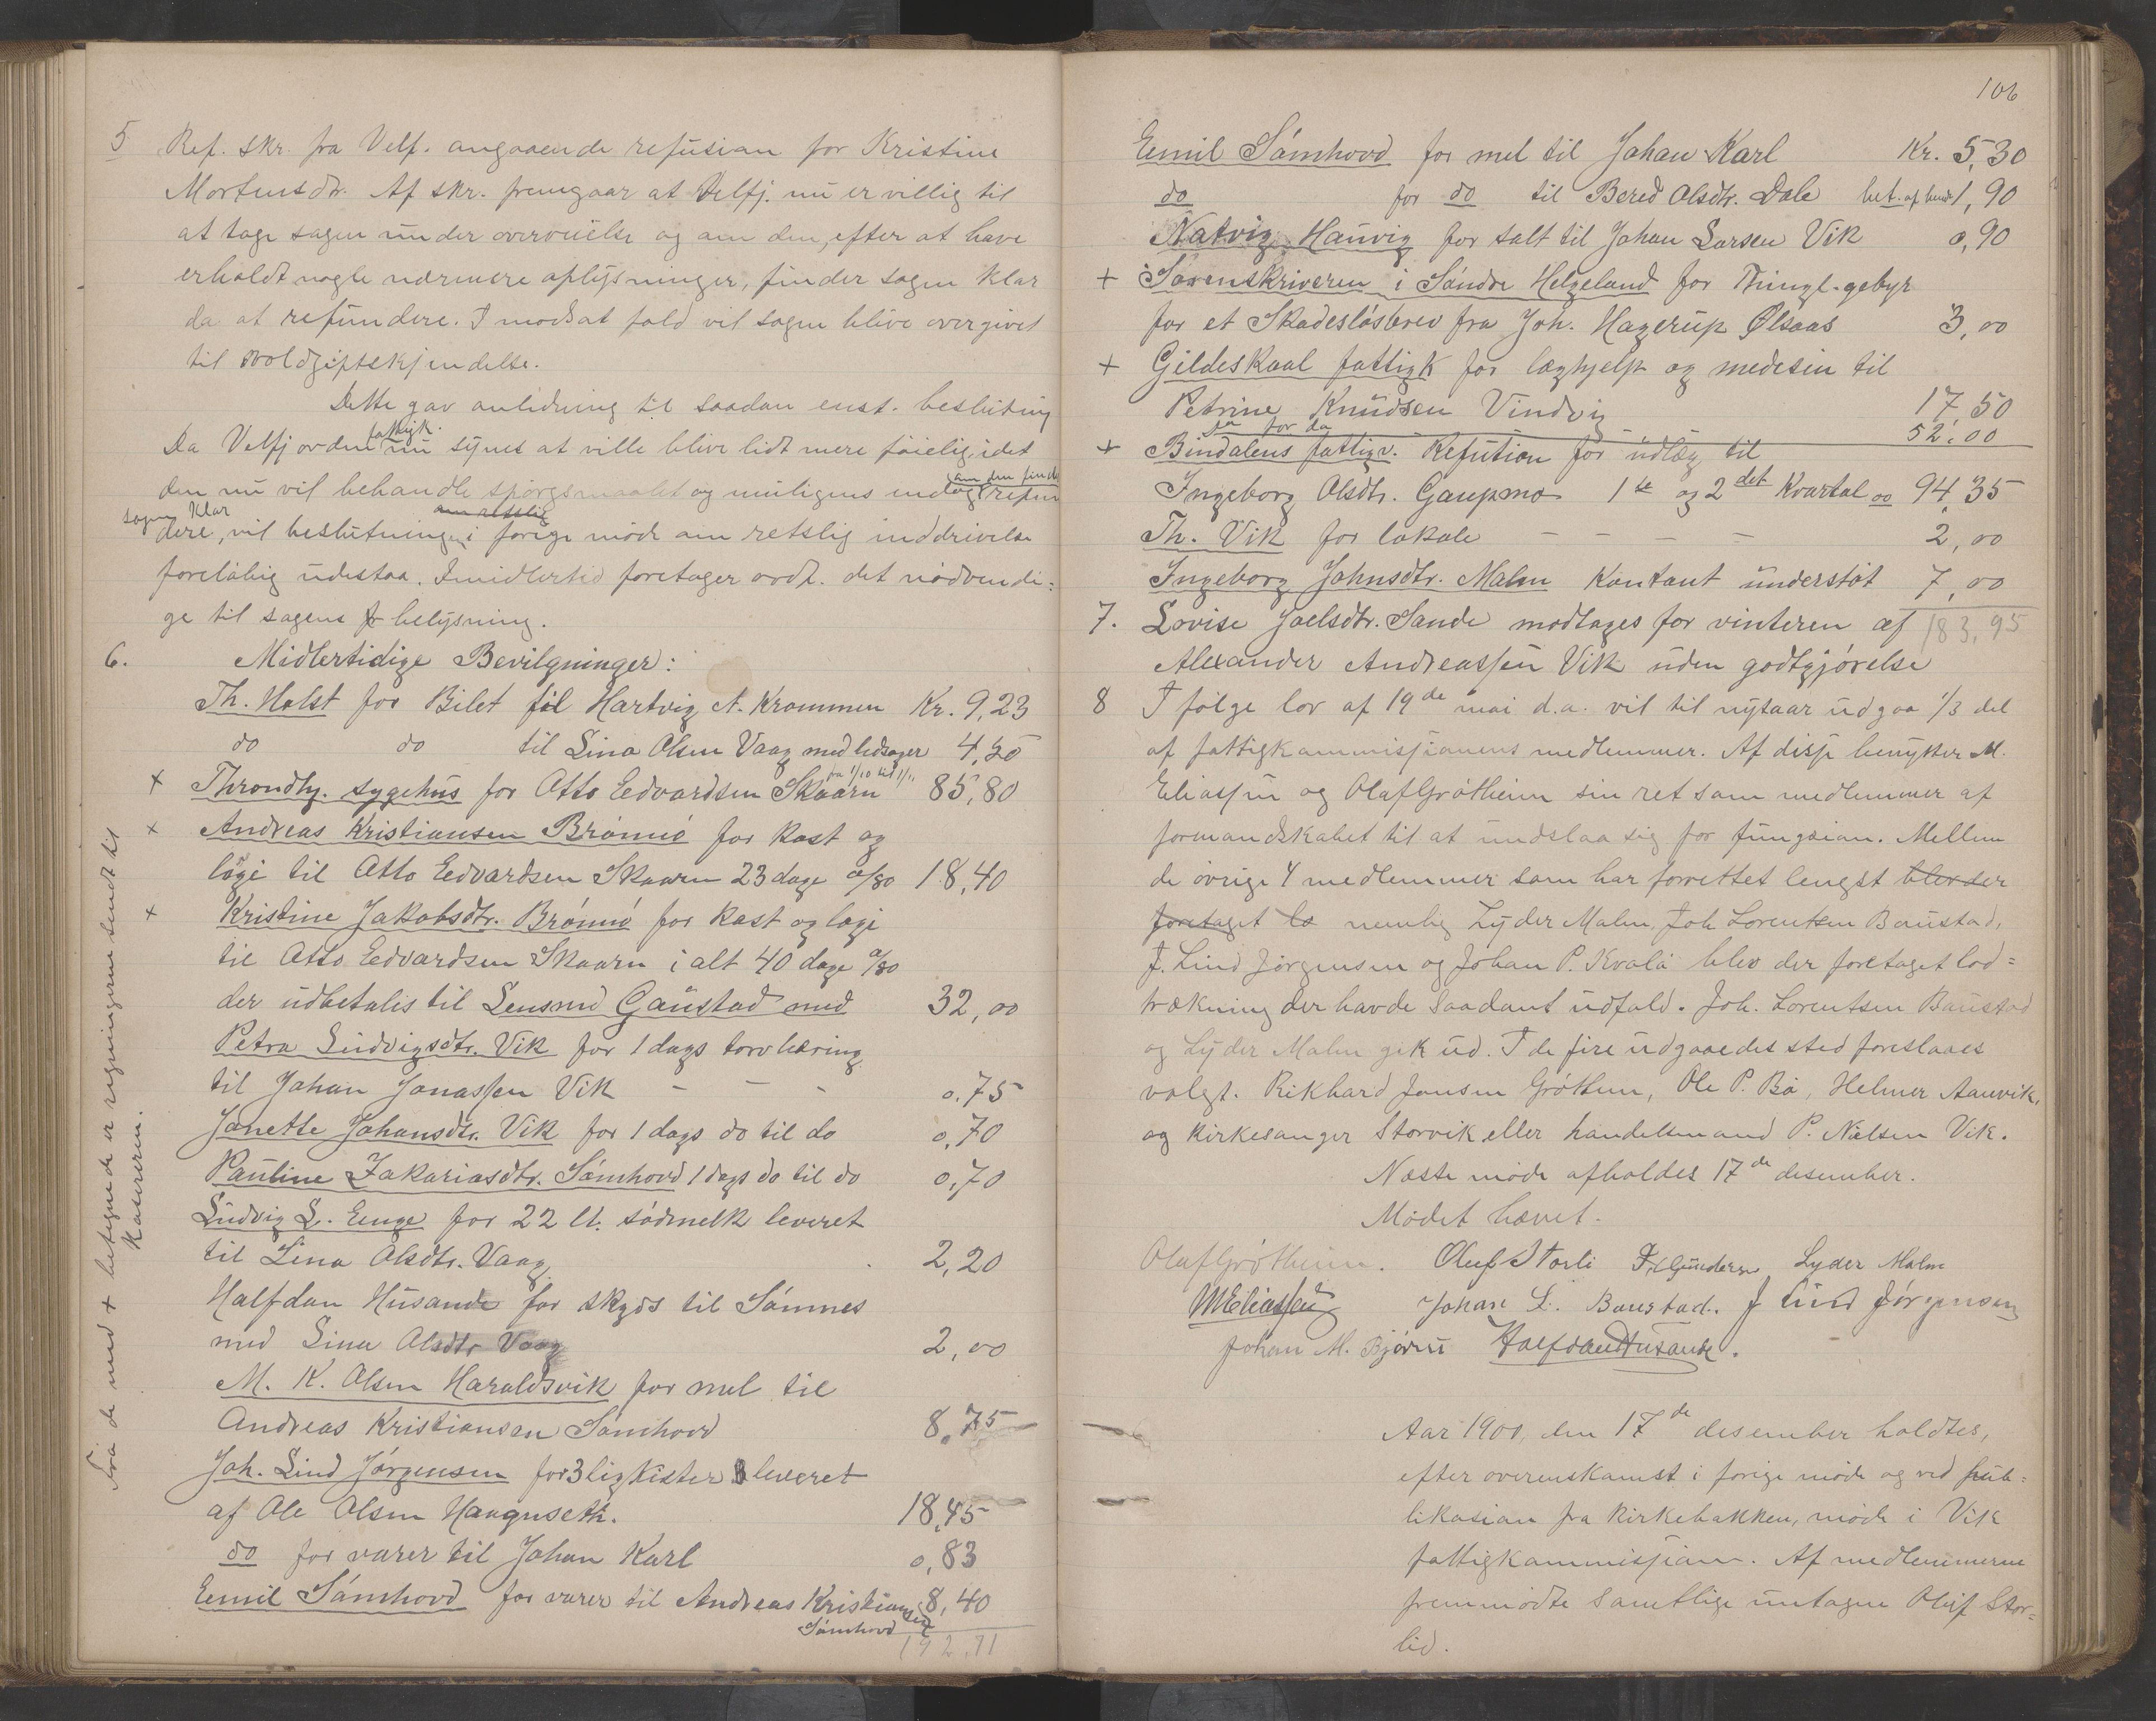 5 Ref. skr. fra Velf. angaaende refusion for Kristine
Mortensdr. Af skr. fremgaar at Velfj. nu er villig til
at tage sagen under overveielse og om den, efter at have
erholdt nogle nærmere oplysninger, finder sagen klar
da at refundere. I modsat fald vil sagen blive overgivet
til voldgiftskjendelse.
Dette gav anledning til saadan enst. beslutning
Da Velfjorden fattigk. nu synes at ville blive lidt mere føielig, idet
den nu vil behandle spørgsmaalet og muligens endog om den finder sagen klar refun
dere, vil beslutningen i forige møde om retslig inddrivelse
foreløbig udestaa. Imidlertid foretager ordf. det nødvendi=
ge til sagens belysning.
6. Midlertidige Bevilgninger:
Th. Holst for Bilet til Hartvig A. Krommen Kr. 9,23
do do til Lina Olsen Vaag med ledsager 4,50
+ Throndhj. sygehus for Otto Edvardsen Skaarn fra 1/10 til 1/11 85,80
+ Andreas Kristiansen Brønnø for kost og
logi til Otto Edvardsen Skaarn 23 dage a/80 18,40
+ Kristine Jakobsdtr. Brønnø for kost og logi
til Otto Edvardsen Skaarn i alt 40 dage a/80
der udbetales til Lensmd Gaustad med 32,00
Petra Ludvigsdtr. Vik for 1 dags torvbæring
til Johan Jonassen Vik - - - 0,75
Janette Johansdtr. Vik for 1 dags do til do 0,70
Pauline Zakariasdtr. Sømhovd 1 dags do til do 0,70
Ludvig L. Enge for 22 lt. sødmelk leveret
til Lina Olsdtr. Vaag 2,20
Halfdan Husande for skyds til Sømnes
med Lina Olsdtr Vaag 2,00
M. K. Olsen Haraldsvik for mel til
Andreas Kristiansen Sømhovd 8,75
Joh. Lind Jørgensen for 3 ligkister leveret
af Ole Olsen Haugnseth. 18,45
do for varer til Johan Karl 0,83
Emil Sømhovd for varer til Andreas Kristiansen Sømhovd 8,40
192,71
Fra de med + betegnede er regningerne sendt til
kasereren.
106
Emil Sømhovd for mel til Johan Karl Kr. 5,30
do for do til Bered Olsdtr. Dale bet. af hende 1,90
Natvig, Hauvig for salt til Johan Larsen Vik 0,90
+ Sorenskriveren i Søndre Helgeland for Thingl. gebyr
for et Skadesløsbrev fra Joh. Hagerup Ølsaas 3,00
+ Gildeskaal fattigk for læghjelp og medesin til
Petrine Knudsen Vindvig 17,50
do for do - - - 52,00
+ Bindalens fattigv. Refusion for udlæg til
Ingeborg Olsdtr. Gaupmo 1ste og 2det Kvartal 00 94,35
Th. Vik for lokale - - - - 2,00
Ingeborg Johnsdtr. Malm Kontant understøt 7,00
183,95
7. Lovise Joelsdtr. Sande modtages for vinteren af
Alexander Andreassen Vik uden godtgjørelse
8 I følge lov af 19de mai d.a. vil til nytaar udgaa 1/3 del
af fattigkommissjonens medlemmer. Af disse benytter M.
Eliassen og Olaf Grøttheim sin ret som medlemmer af
formandskabet til at undslaa sig for fungsion. Mellem
de øvrige 4 medlemmer som har forrettet lengst blev der
foretaget lo nemlig Lyder Malm, Joh Lorentsen Baustad,
J. Lind Jørgensen og Johan P. Kvalø blev der foretaget lod=
trækning der havde saadant udfald. Joh. Lorentsen Baustad
og Lyder Malm gik ud. I de fire udgaaedes sted foreslaaes
valgt. Rikhard Jonsen Grøttem, Ole P. Bø, Helmer Aanvik,
og kirkesanger Storvik eller handelsmand P. Nielsen Vik.
Næste møde afholdes 17de desember.
Mødet hævet.
Olaf Grøttheim. Oluf Storli F. Gundersen Lyder Malm
M Eliassen Johan L. Baustad. J Lind Jørgensen
Johan M. Bjørnø Halfdan Husande.
Aar 1900, den 17de desember holdtes,
efter overenskomst i forige møde og ved pub=
likasion fra kirkebakken, møde i Vik
fattigkommissjion. Af medlemmerne
fremmødte samtlige untagen Oluf Stor=
lid.